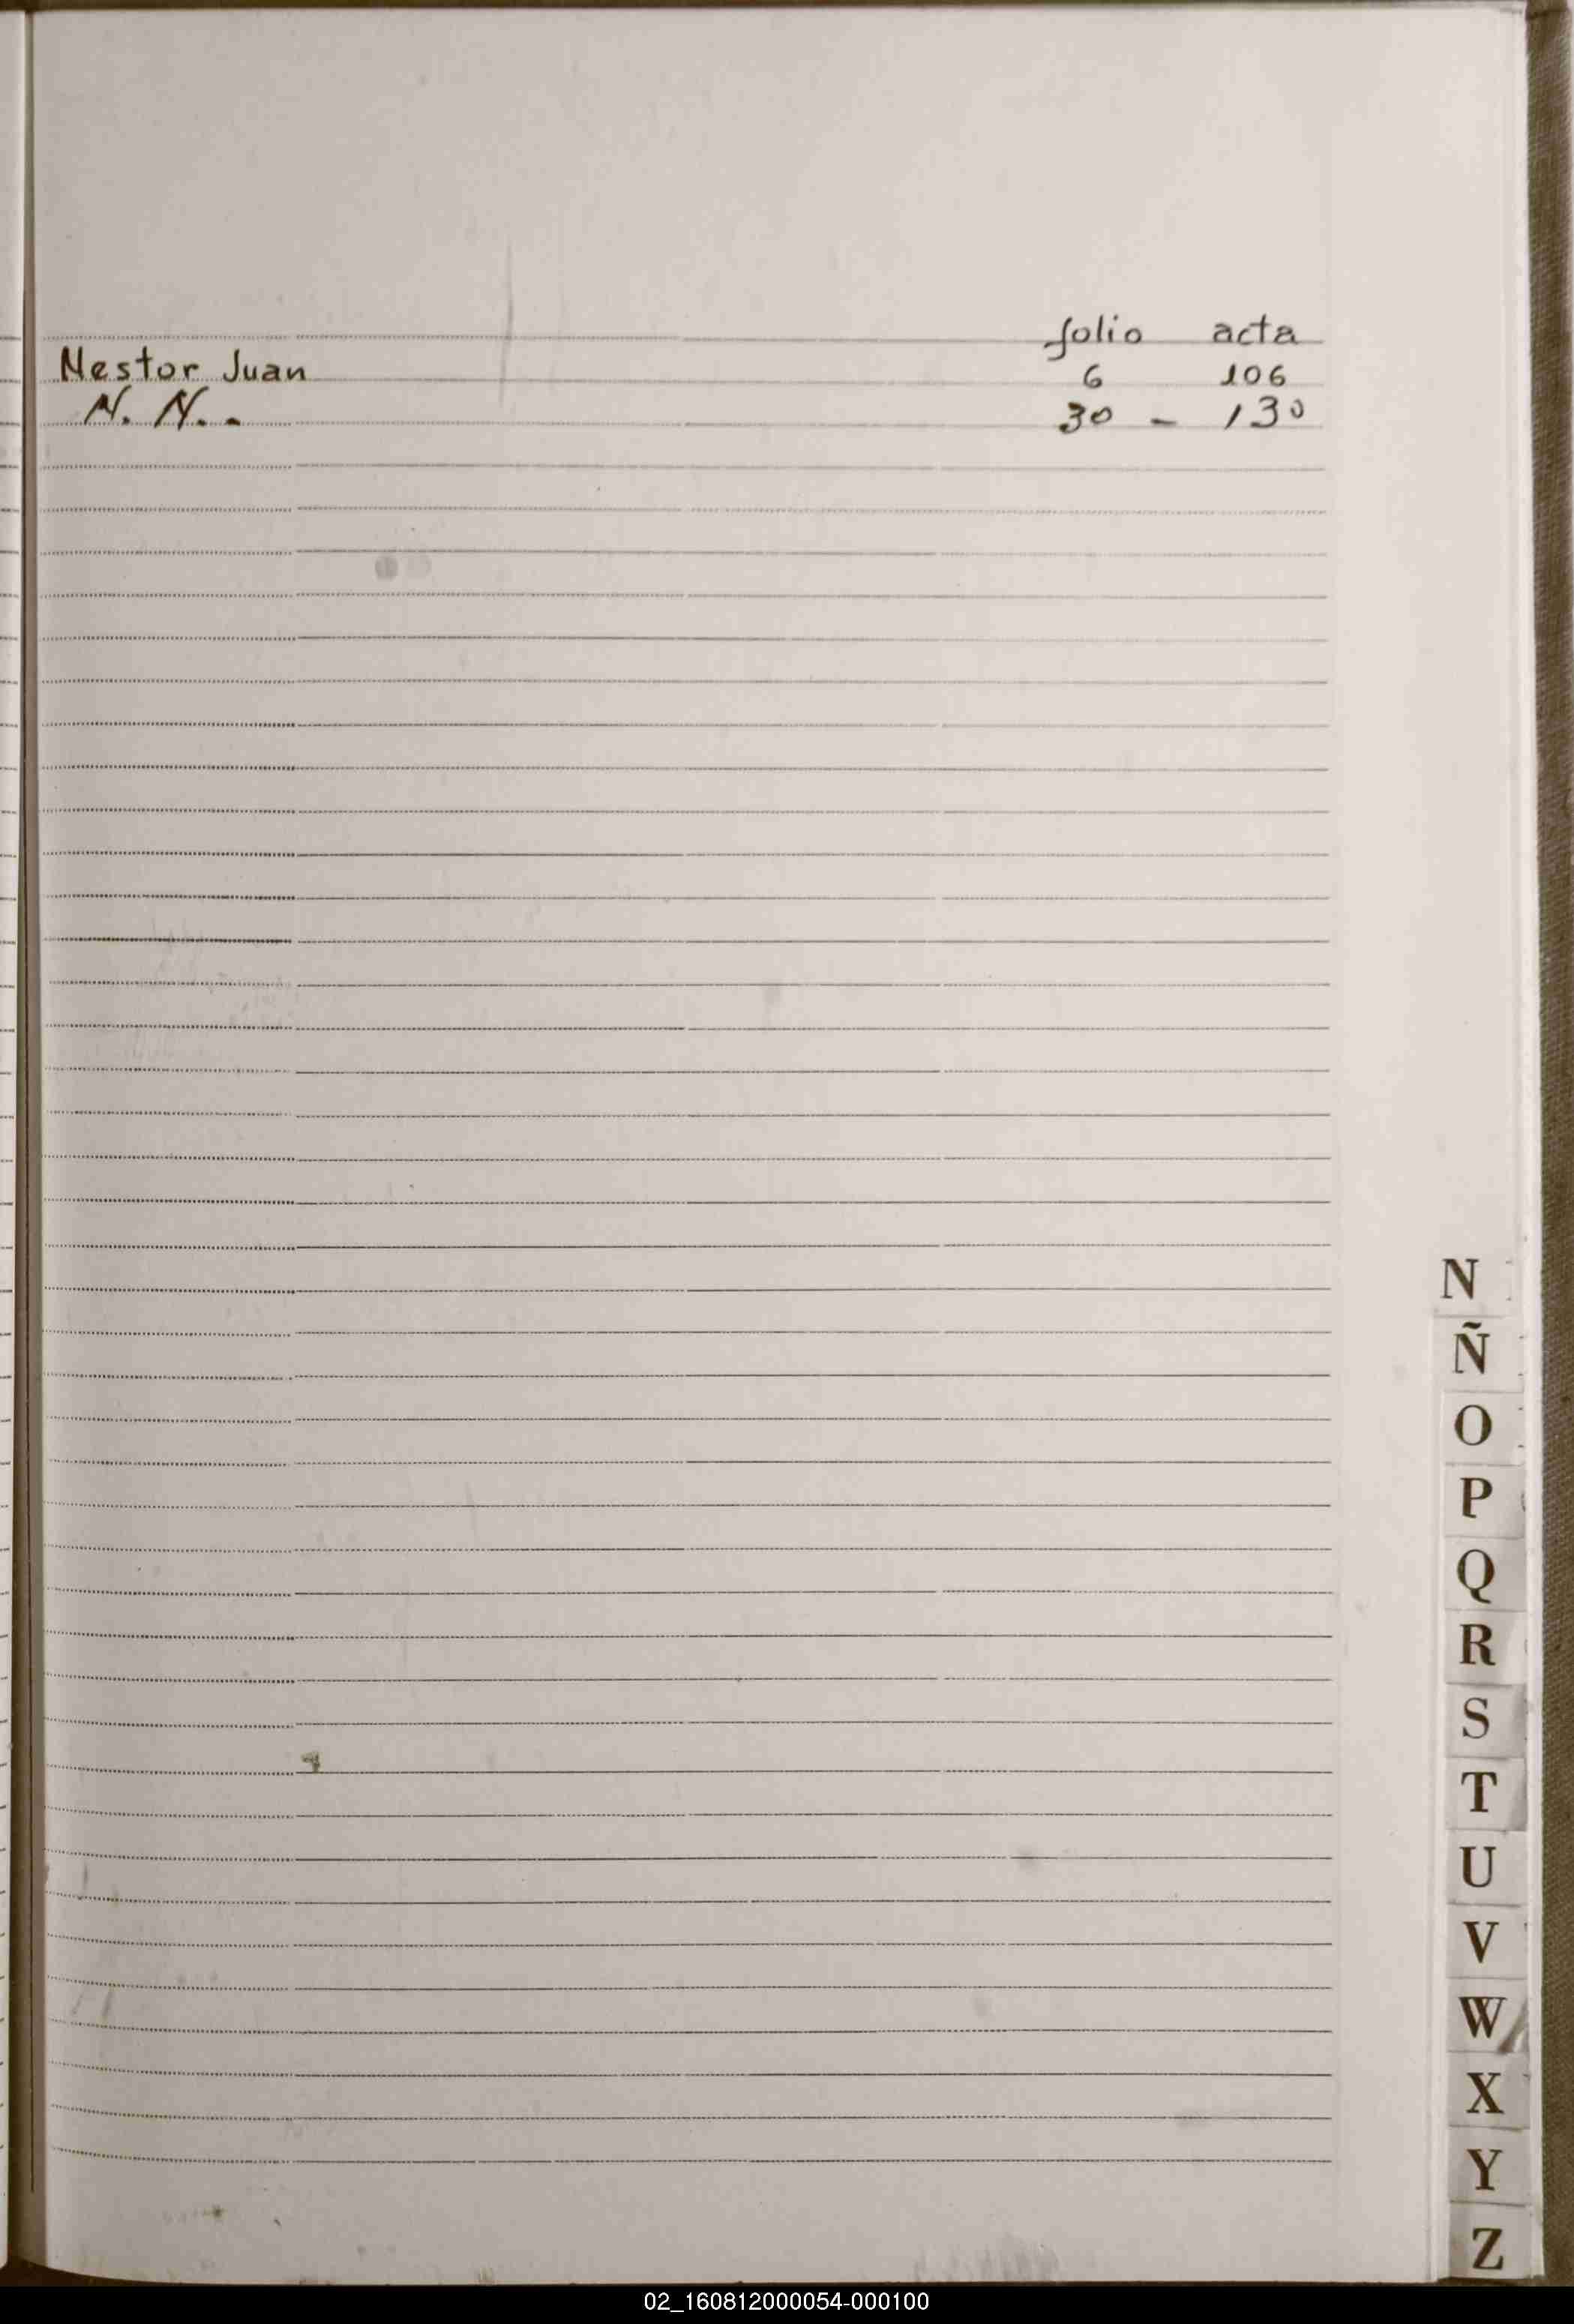 folio acta
Nestor Juan 6 106
N. N. - 30 - 130
N
Ñ
O
P
Q
R
S
T
U
V
W
X
Y
Z
02_160812000054-000100